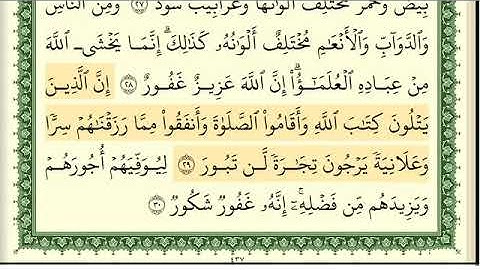 بِيضٌ وَحُمْرٌ مُّخْتَلِفٌ أَلْوَٰنُهَا وَغَرَابِيبُ سُودٌ ٢٧ وَمِنَ ٱلنَّاسِ
وَٱلدَّوَآبِّ وَٱلْأَنْعَٰمِ مُخْتَلِفٌ أَلْوَٰنُهُۥ كَذَٰلِكَۗ إِنَّمَا يَخْشَى ٱللَّهَ
مِنْ عِبَادِهِ ٱلْعُلَمَٰٓؤُا۟ۗ إِنَّ ٱللَّهَ عَزِيزٌ غَفُورٌ ٢٨ إِنَّ ٱلَّذِينَ
يَتْلُونَ كِتَٰبَ ٱللَّهِ وَأَقَامُوا۟ ٱلصَّلَوٰةَ وَأَنفَقُوا۟ مِمَّا رَزَقْنَٰهُمْ سِرًّا
وَعَلَانِيَةً يَرْجُونَ تِجَٰرَةً لَّن تَبُورَ ٢٩ لِيُوَفِّيَهُمْ أُجُورَهُمْ
وَيَزِيدَهُم مِّن فَضْلِهِۦٓۚ إِنَّهُۥ غَفُورٌ شَكُورٌ ٣٠
٤٣٧